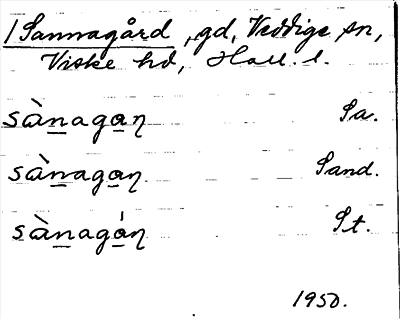 /Sannagård, gd, Veddige sn,
Viske hd, Hall. l.
sànagan̥ Sa.
sànagan̥ Sand.
sànagán̥ St.
1950.